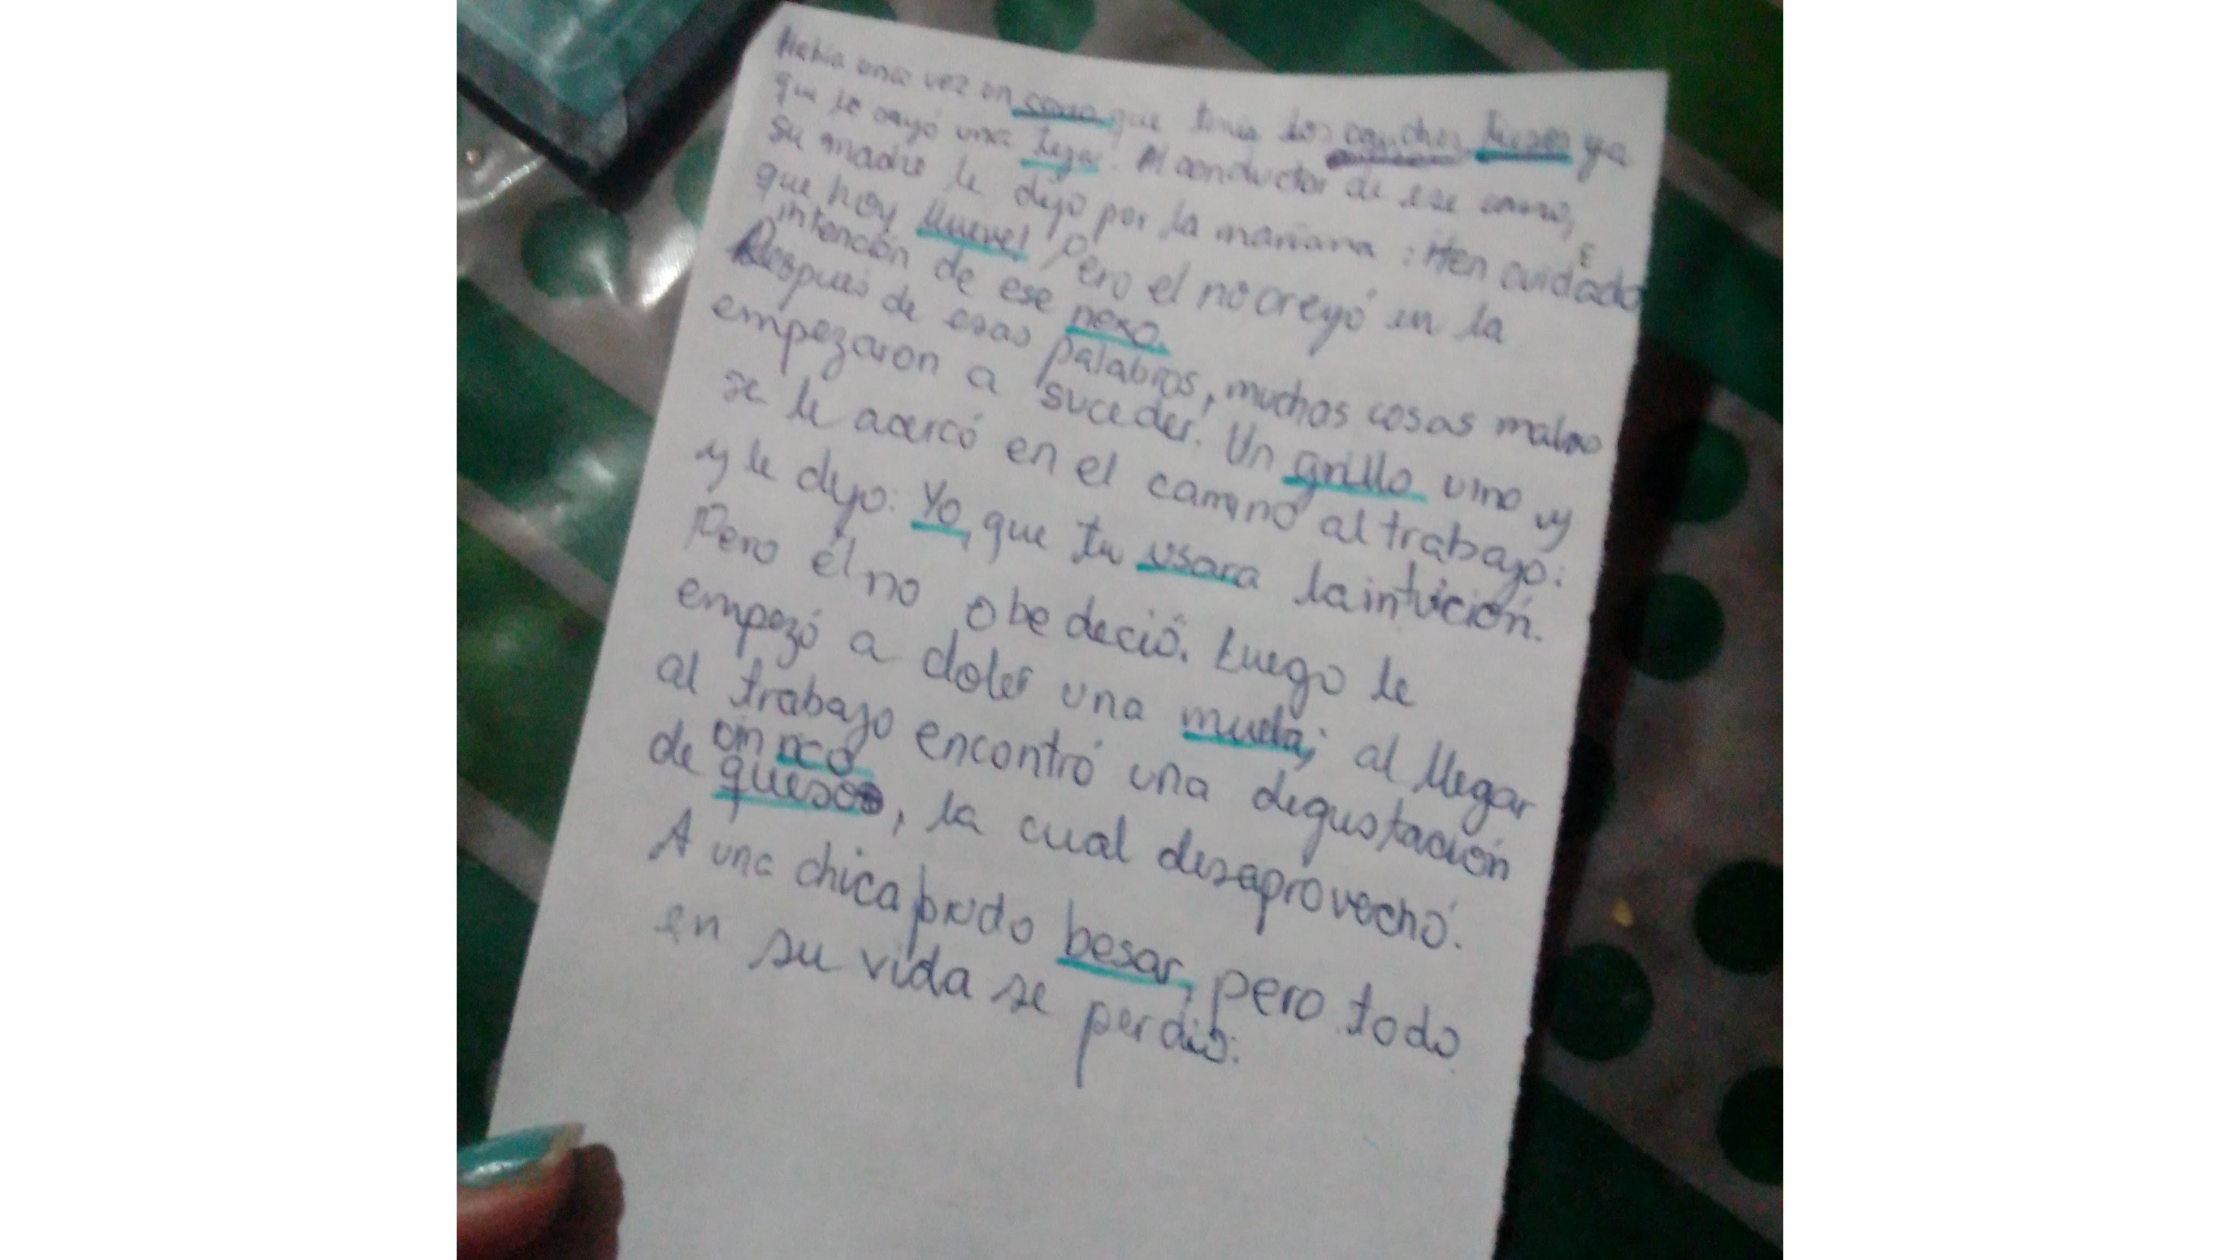 Había una vez un carro que tenía los cauchos tiesos ya
que le cayó una tega. Al conductor de ese carro,
su madre le dijo por la mañana: Ten cuidado
que hoy llueve! Pero el no creyó en la
intención de ese nexo.
Después de esas palabras, muchas cosas malas
empezaron a suceder. Un grillo vino y
se le acercó en el camino al trabajo:
y le dijo: Yo, que tu usara la intuición.
Pero él no obedeció. Luego le
empezó a doler una muela; al llegar
al trabajo encontró una degustación
de queso, la cual desaprovechó.
A una chica pudo besar, pero todo
en su vida se perdió.